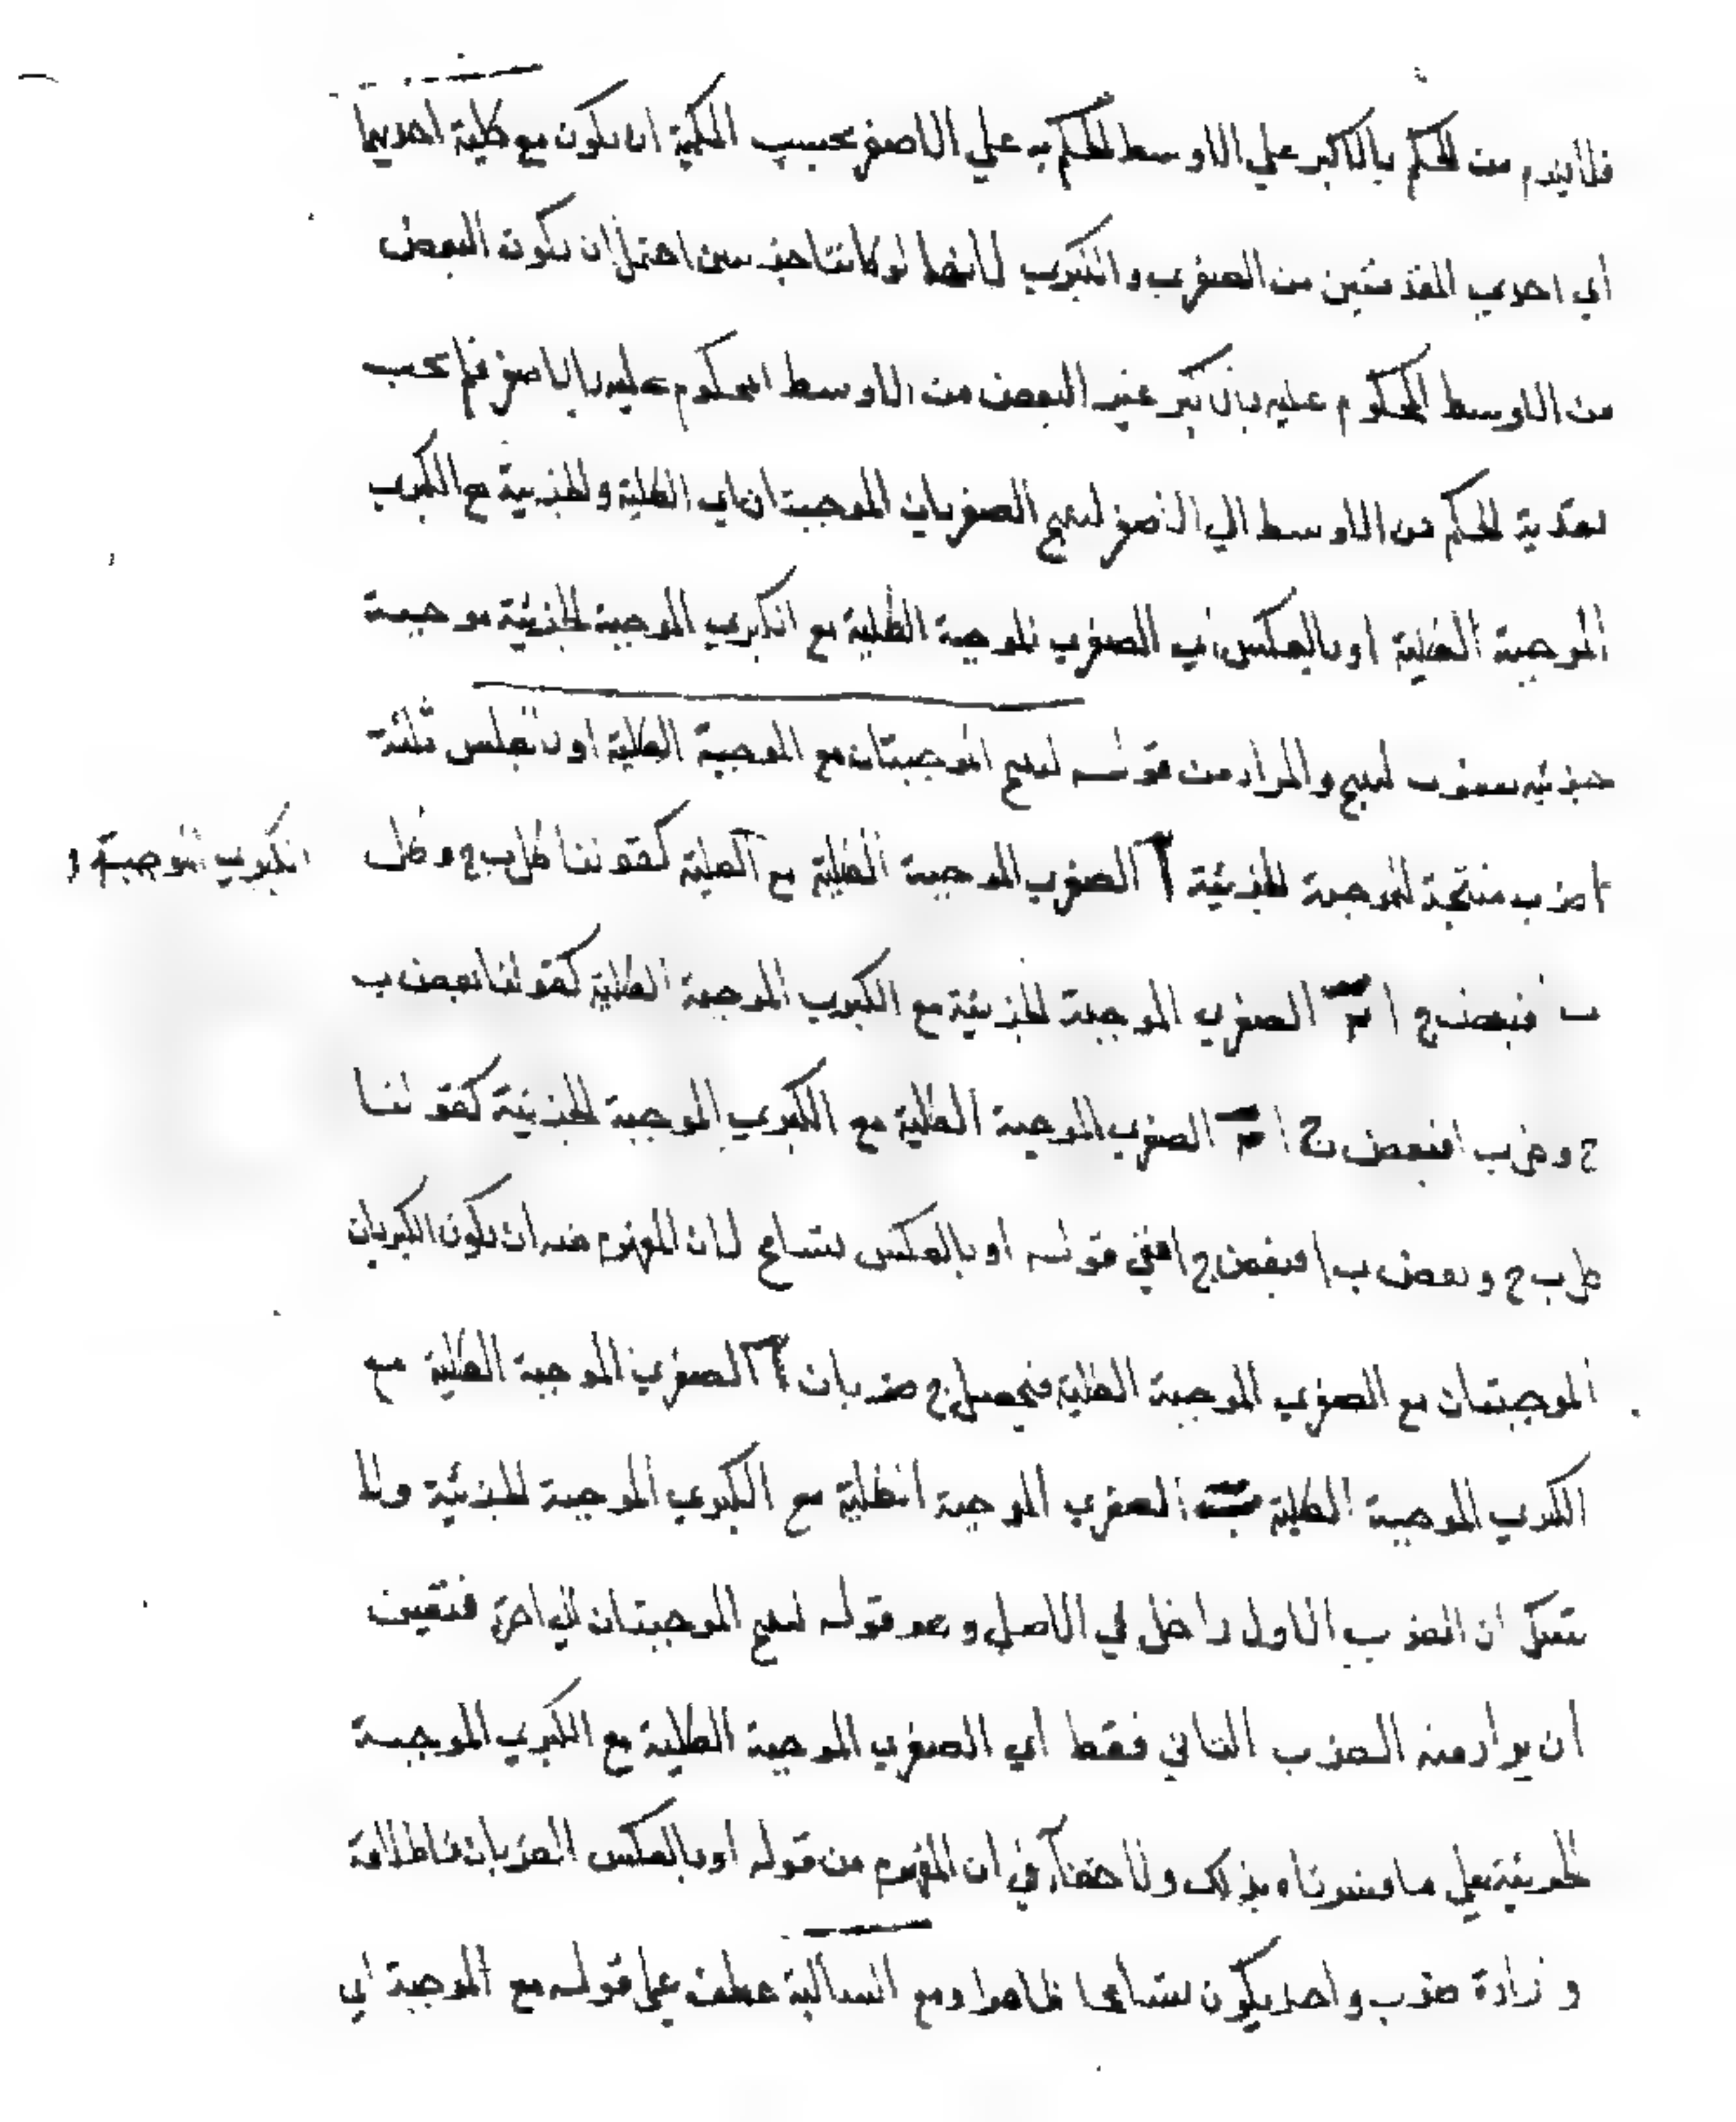 فلا يلزم من الحكم بالاكبر علي الاوسط الحكم به علي الاصغر بحسب الكمية ان يكون مع كلية احديهما
اي احدي المقدمتين من الصغري والكبري لانهما لو كانتا جزئيتين احتمل ان يكون البعض
من الاوسط المحكوم عليه بالاكبر غير البعض من الاوسط المحكوم عليه بالاصغر فلم يجب
تعدية الحكم من الاوسط الي الاصغر لينتج الصغريان الموجبتان اي الكلية والجزئية مع الكبري
الموجبة الكلية او بالعكس اي الصغري الموجبة الكلية مع الكبري الموجبة الجزئية موجبة
جزئية لينتج والمراد من قوله لينتج الموجبتان مع الموجبة الكلية او بالعكس ثلثة
اضرب منتجة للموجبة الجزئية آ الصغري الموجبة الكلية مع الكلية كقولنا كل ب ج وكل
الكبري الموجبة و
ب ا فبعض ج ا الصغري الموجبة الجزئية مع الكبري الموجبة الكلية كقولنا بعض ب
ج وكل ب ا فبعض ج ا الصغري الموجبة الكلية مع الكبري الموجبة الجزئية كقولنا
كل ب ج وبعض ب ا فبعض ج ا ففي قوله او بالعكس تسامح لان المفهوم منه ان يكون الكبريان
الموجبتان مع الصغري الموجبة الكلية فيحصل ضربان آ الصغري الموجبة الكلية مع
الكبري الموجبة الكلية ب الصغري الموجبة الكلية مع الكبري الموجبة الجزئية ولا
شك ان الضرب الاول داخل في الاصل وهو قوله لينتج الموجبتان فتعين
ان يراد منه الضرب الثاني فقط اي الصغري الموجبة الكلية مع الكبري الموجبة
الجزئية علي ما فسرناه بذلك ولا خفاء في ان المفهوم من قوله او بالعكس الضربان فاطلاقه
وارادة ضرب واحد يكون تسامحا ظاهرا ومع السالبة عطف علي قوله مع الموجبة اي